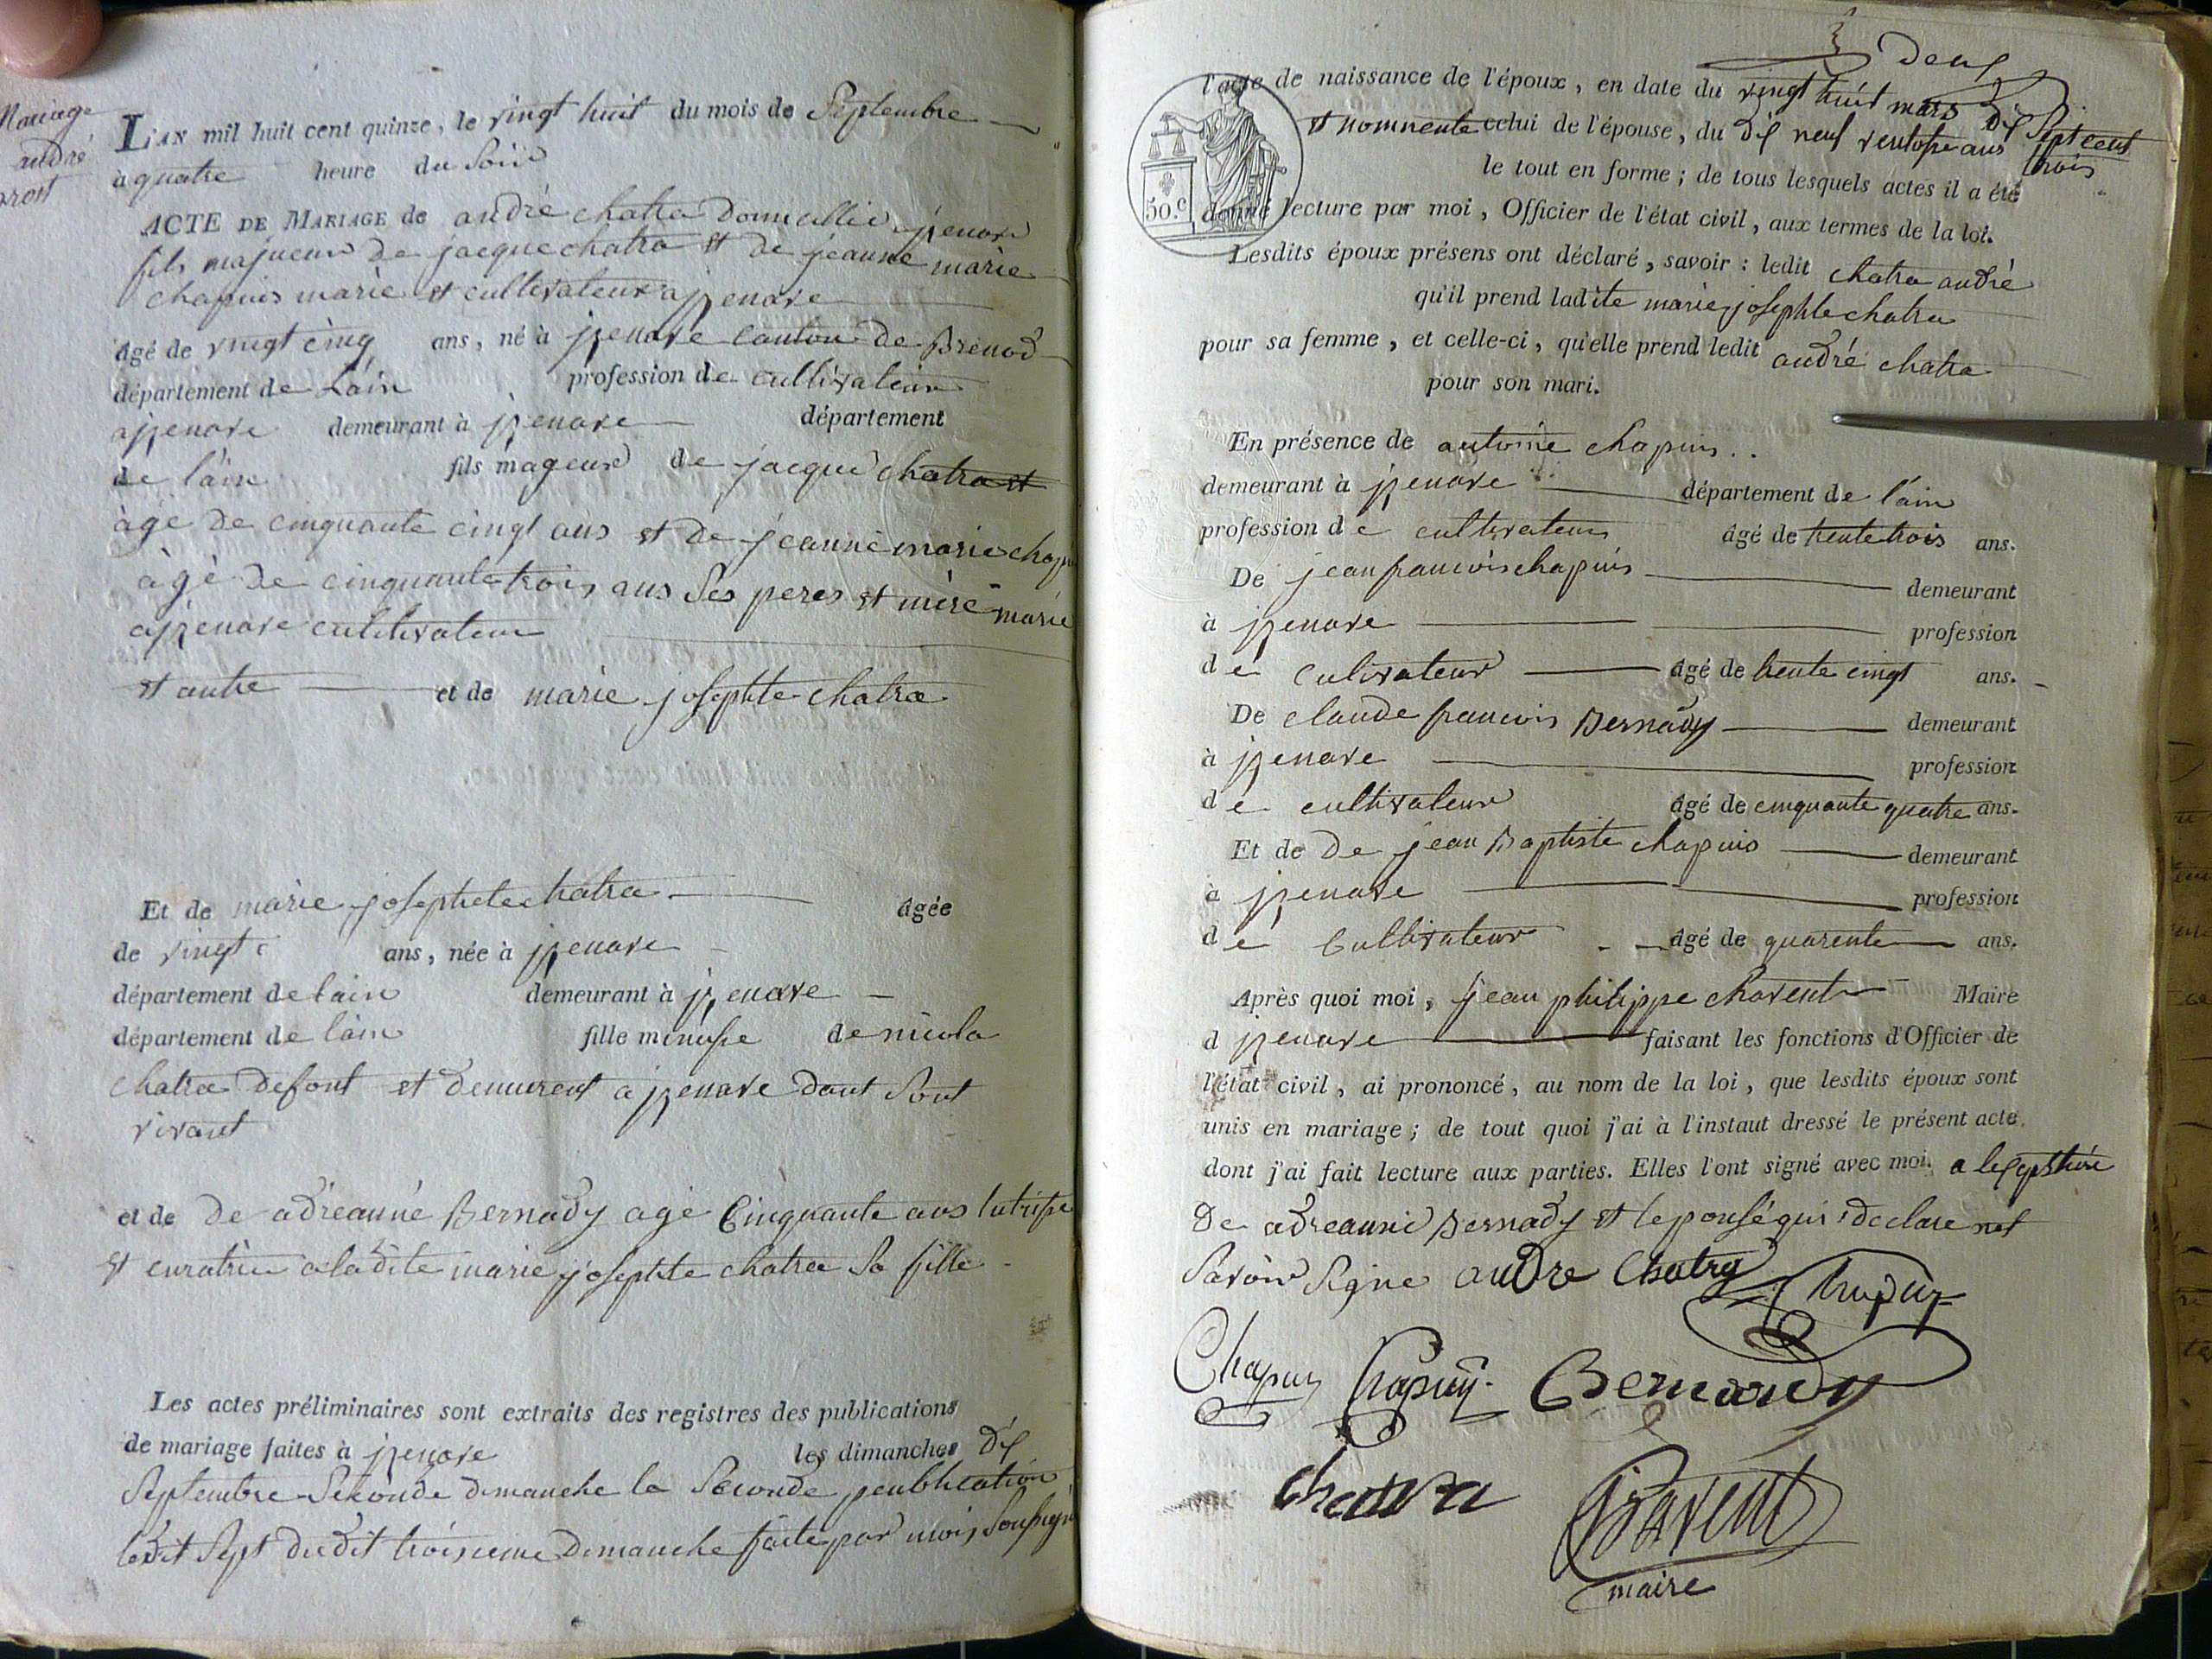 Mariage
andré
L'AN mil huit cent quinze, le vingt huit du mois de Septembre
a quatre heure du Soir
ACTE DE MARIAGE de andré chatra domicillié
fils majueur de jacque chatra et de jeanne marie
chapuis marié et cultivateur a jzenave
âgé de vingt cinq ans, né à jzenave canton de Brenod
département de Lain profession de cultivateur
a jzenave demeurant à jzenave département
de lain fils mageur de jacque chatra et
àgé de cinquante cingt ans et de jeanne marie chapu
àgé de cinquante trois ans Ses peres et mére marié
a jzenave cultivateur
et autre et de marie josephte chatra
Et de marie josephte chatra âgée
de vingt ans, née à jzenave
département de lain demeurant à jzenave
département de lain fille de nicola
chatra defont et demeurent a jzenave dont Sont
vivant
et de de adréanné Bernady agé Cinquante ans
et curatrice a ladite marie josephte chatra Sa fille
Les actes préliminaires sont extraits des registres des publications
de mariage faites à jzenave les dimanches dix
Septembre Seconde dimanche la Seconde peublication
ledit Sept dudit troisieme dimanche faite par mois
deux
l'acte de naissance de l'époux, en date du vingt huit mars dix Sept cent
et nonnente celui de l'épouse, du dix neuf ventose ans trois
le tout en forme ; de tous lesquels actes il a été
50.c
donné lecture par moi, Officier de l'état civil, aux termes de la loi.
Lesdits époux présens ont déclaré, savoir : ledit chatra andré
qu'il prend ladite marie josephte chatra
pour sa femme, et celle-ci, qu'elle prend ledit andré chatra
pour son mari.
En présence de antoine chapuis
demeurant à jzenave département de lain
profession de cultivateur âgé de trente trois ans.
De jean francois chapuis demeurant
à jzenave profession
de culivateur âgé de trente cingt ans.
De claude francois Bernady demeurant
à jzenave profession
de cultivateur âgé de cinquante quatre ans.
Et de De jean Baptiste chapuis demeurant
à jzenave profession
de Cultivateur âgé de quarente ans.
Après quoi moi, jean philippe chavent Maire
d jzenave faisant les fonctions d'Officier de
l'état civil, ai prononcé, au nom de la loi, que lesdits époux sont
unis en mariage ; de tout quoi j'ai à l'instant dressé le présent acte
dont j'ai fait lecture aux parties. Elles l'ont signé avec moi. a
De adreanne Bernady et qui declare
Savoir Signe andre Chatra
Chapuy Chapuy Bernardy
chatra Chavent
maire